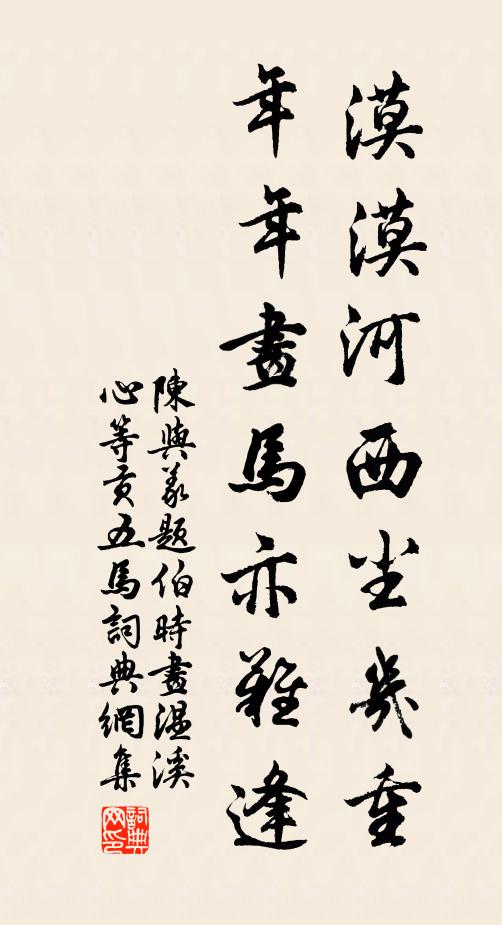 漠漠河西尘幾重
年年畫馬亦難逢
陳與義題伯時畫温溪
心等貢五馬詞典網集
詞典网印